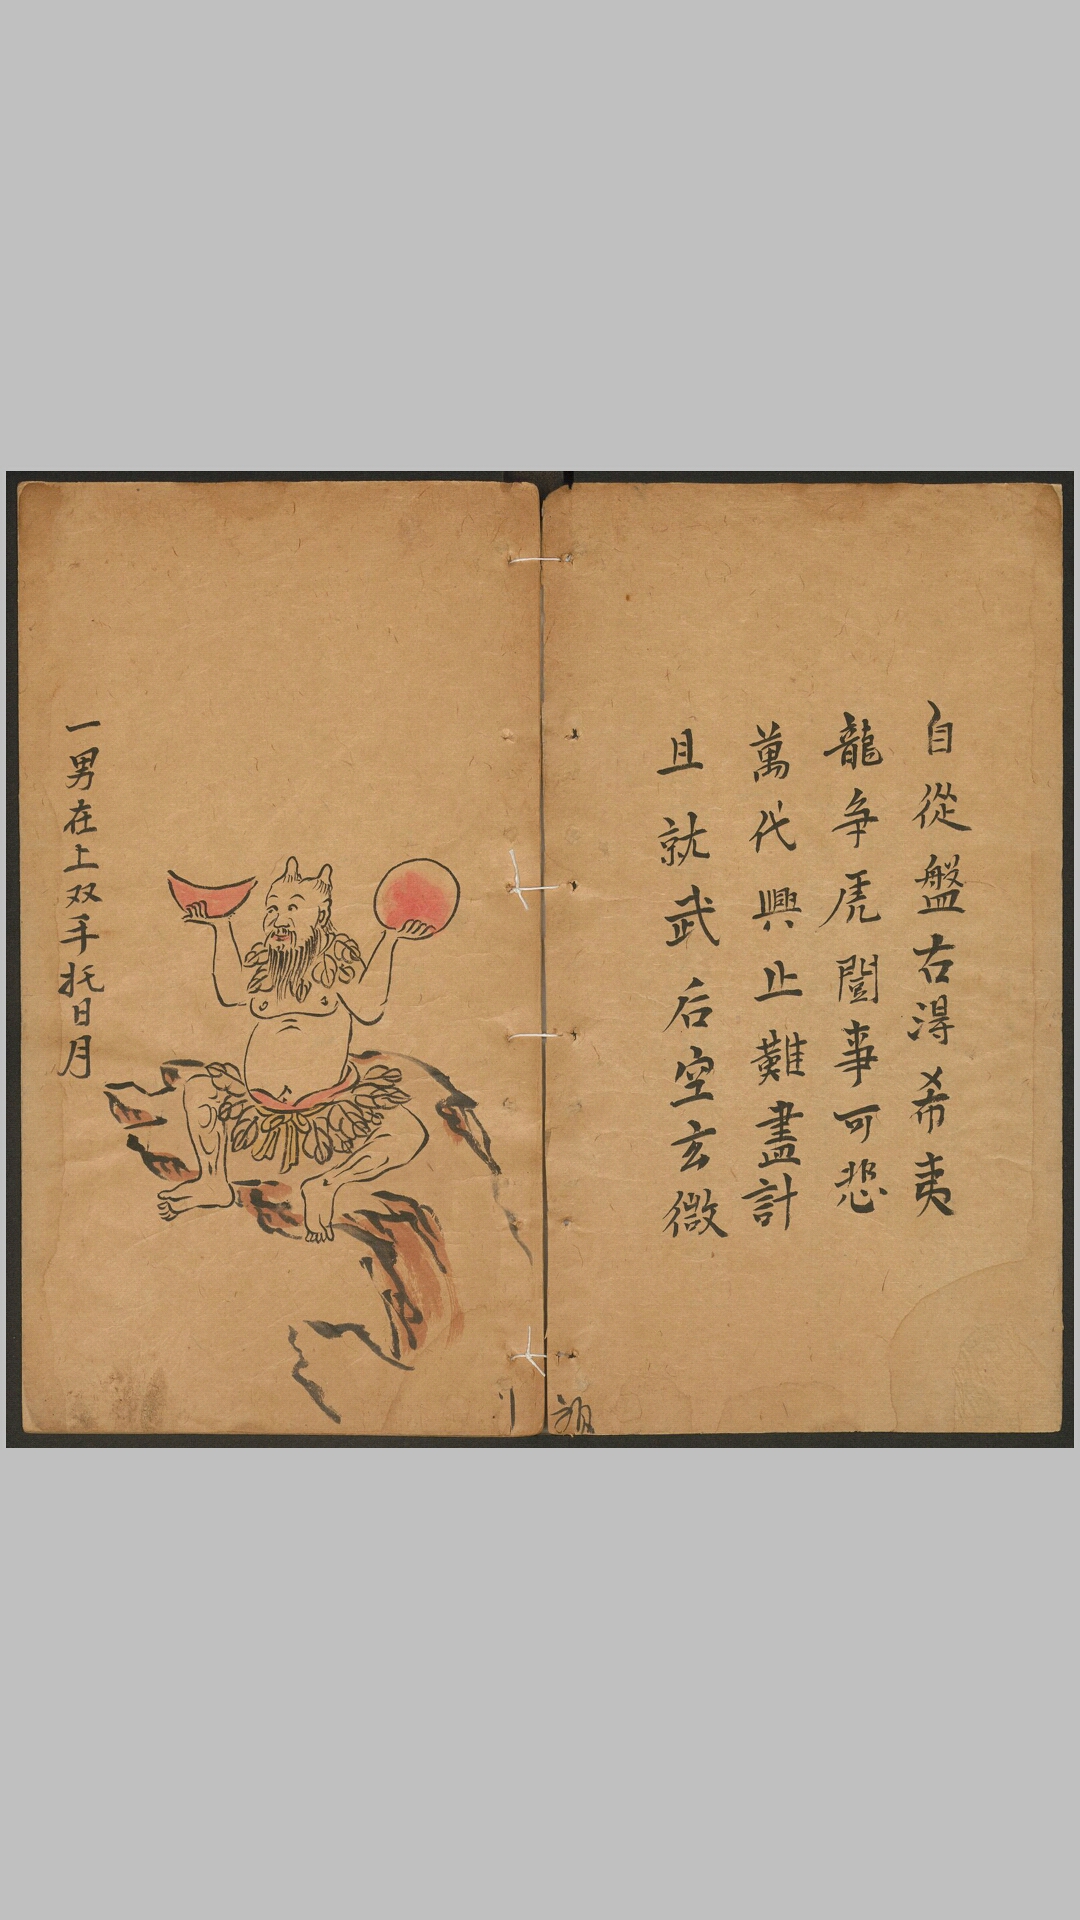 自從盤古得希夷
龍争虎鬪事可悲
萬代興止難盡計
且就武后空玄微
一男在上双手托日月